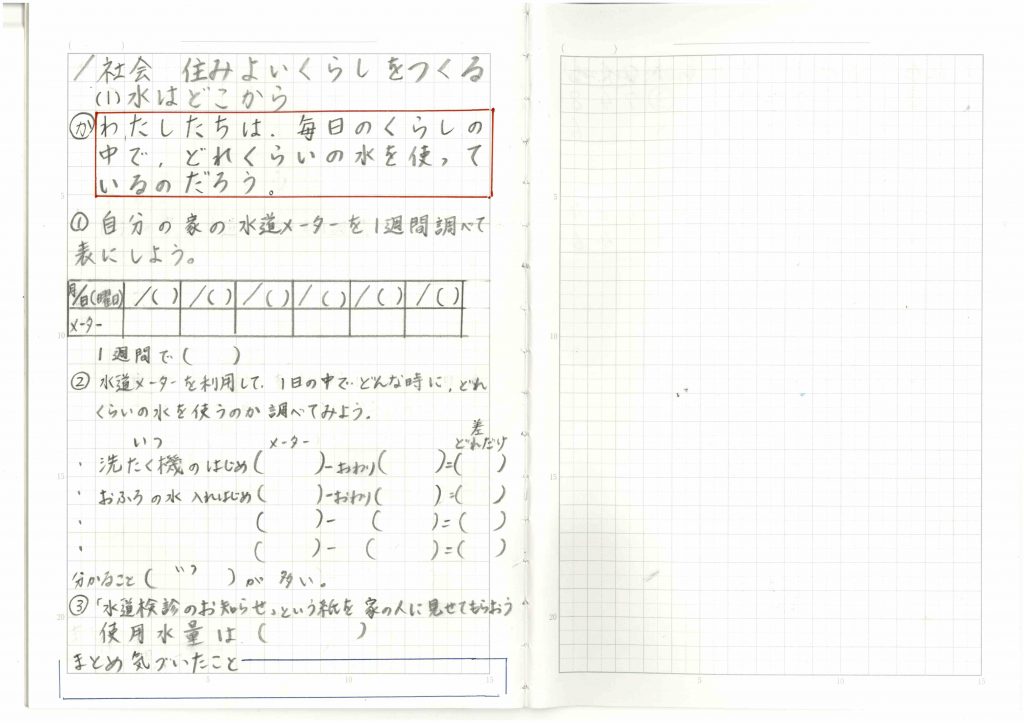 / 社会 住みよいくらしをつくる
(1)水はどこから
か わたしたちは、毎日のくらしの
中で、どれくらいの水を使って
いるのだろう。
① 自分の家の水道メーターを1週間調べて
表にしよう。
月/日(曜日) /( ) /( ) /( ) /( ) /( ) /( )
メーター
1週間で( )
② 水道メーターを利用して、1日の中でどんな時に、どれ
くらいの水を使うのか調べてみよう。
いつ メーター 差 どれだけ
・ 洗たく機のはじめ( )-おわり( )=( )
・ おふろの水 入れはじめ( )-おわり( )=( )
・ ( )- ( )=( )
・ ( )- ( )=( )
分かること( いつ )が多い。
③「水道検診のお知らせ」という紙を家の人に見せてもらおう
使用水量は( )
まとめ 気づいたこと
5
10
15
20
5
10
15
5
10
15
20
5
10
15